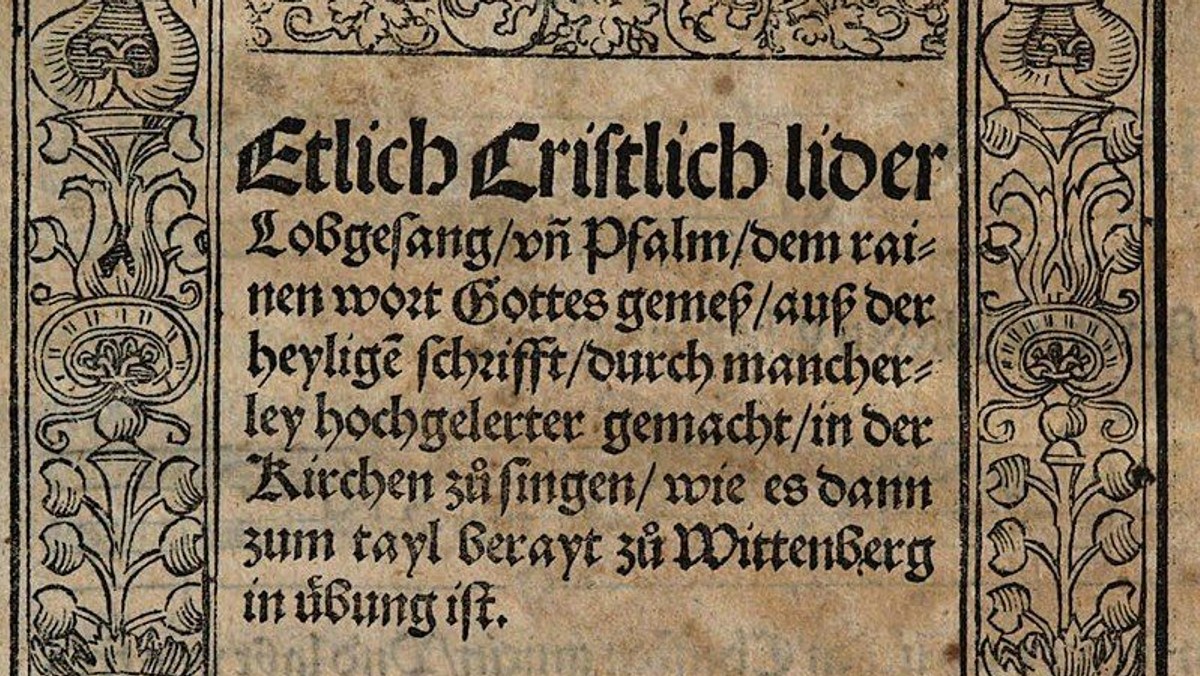 Etlich Cristlich lider
Lobgesang/vñ Psalm/dem rai⸗
nen wort Gottes gemeß/auß der
heyligẽ schrifft/durch mancher⸗
ley hochgelerter gemacht/in der
Kirchen zů singen/ wie es dann
zum tayl berayt zů Wittenberg
in uͤbung ist.